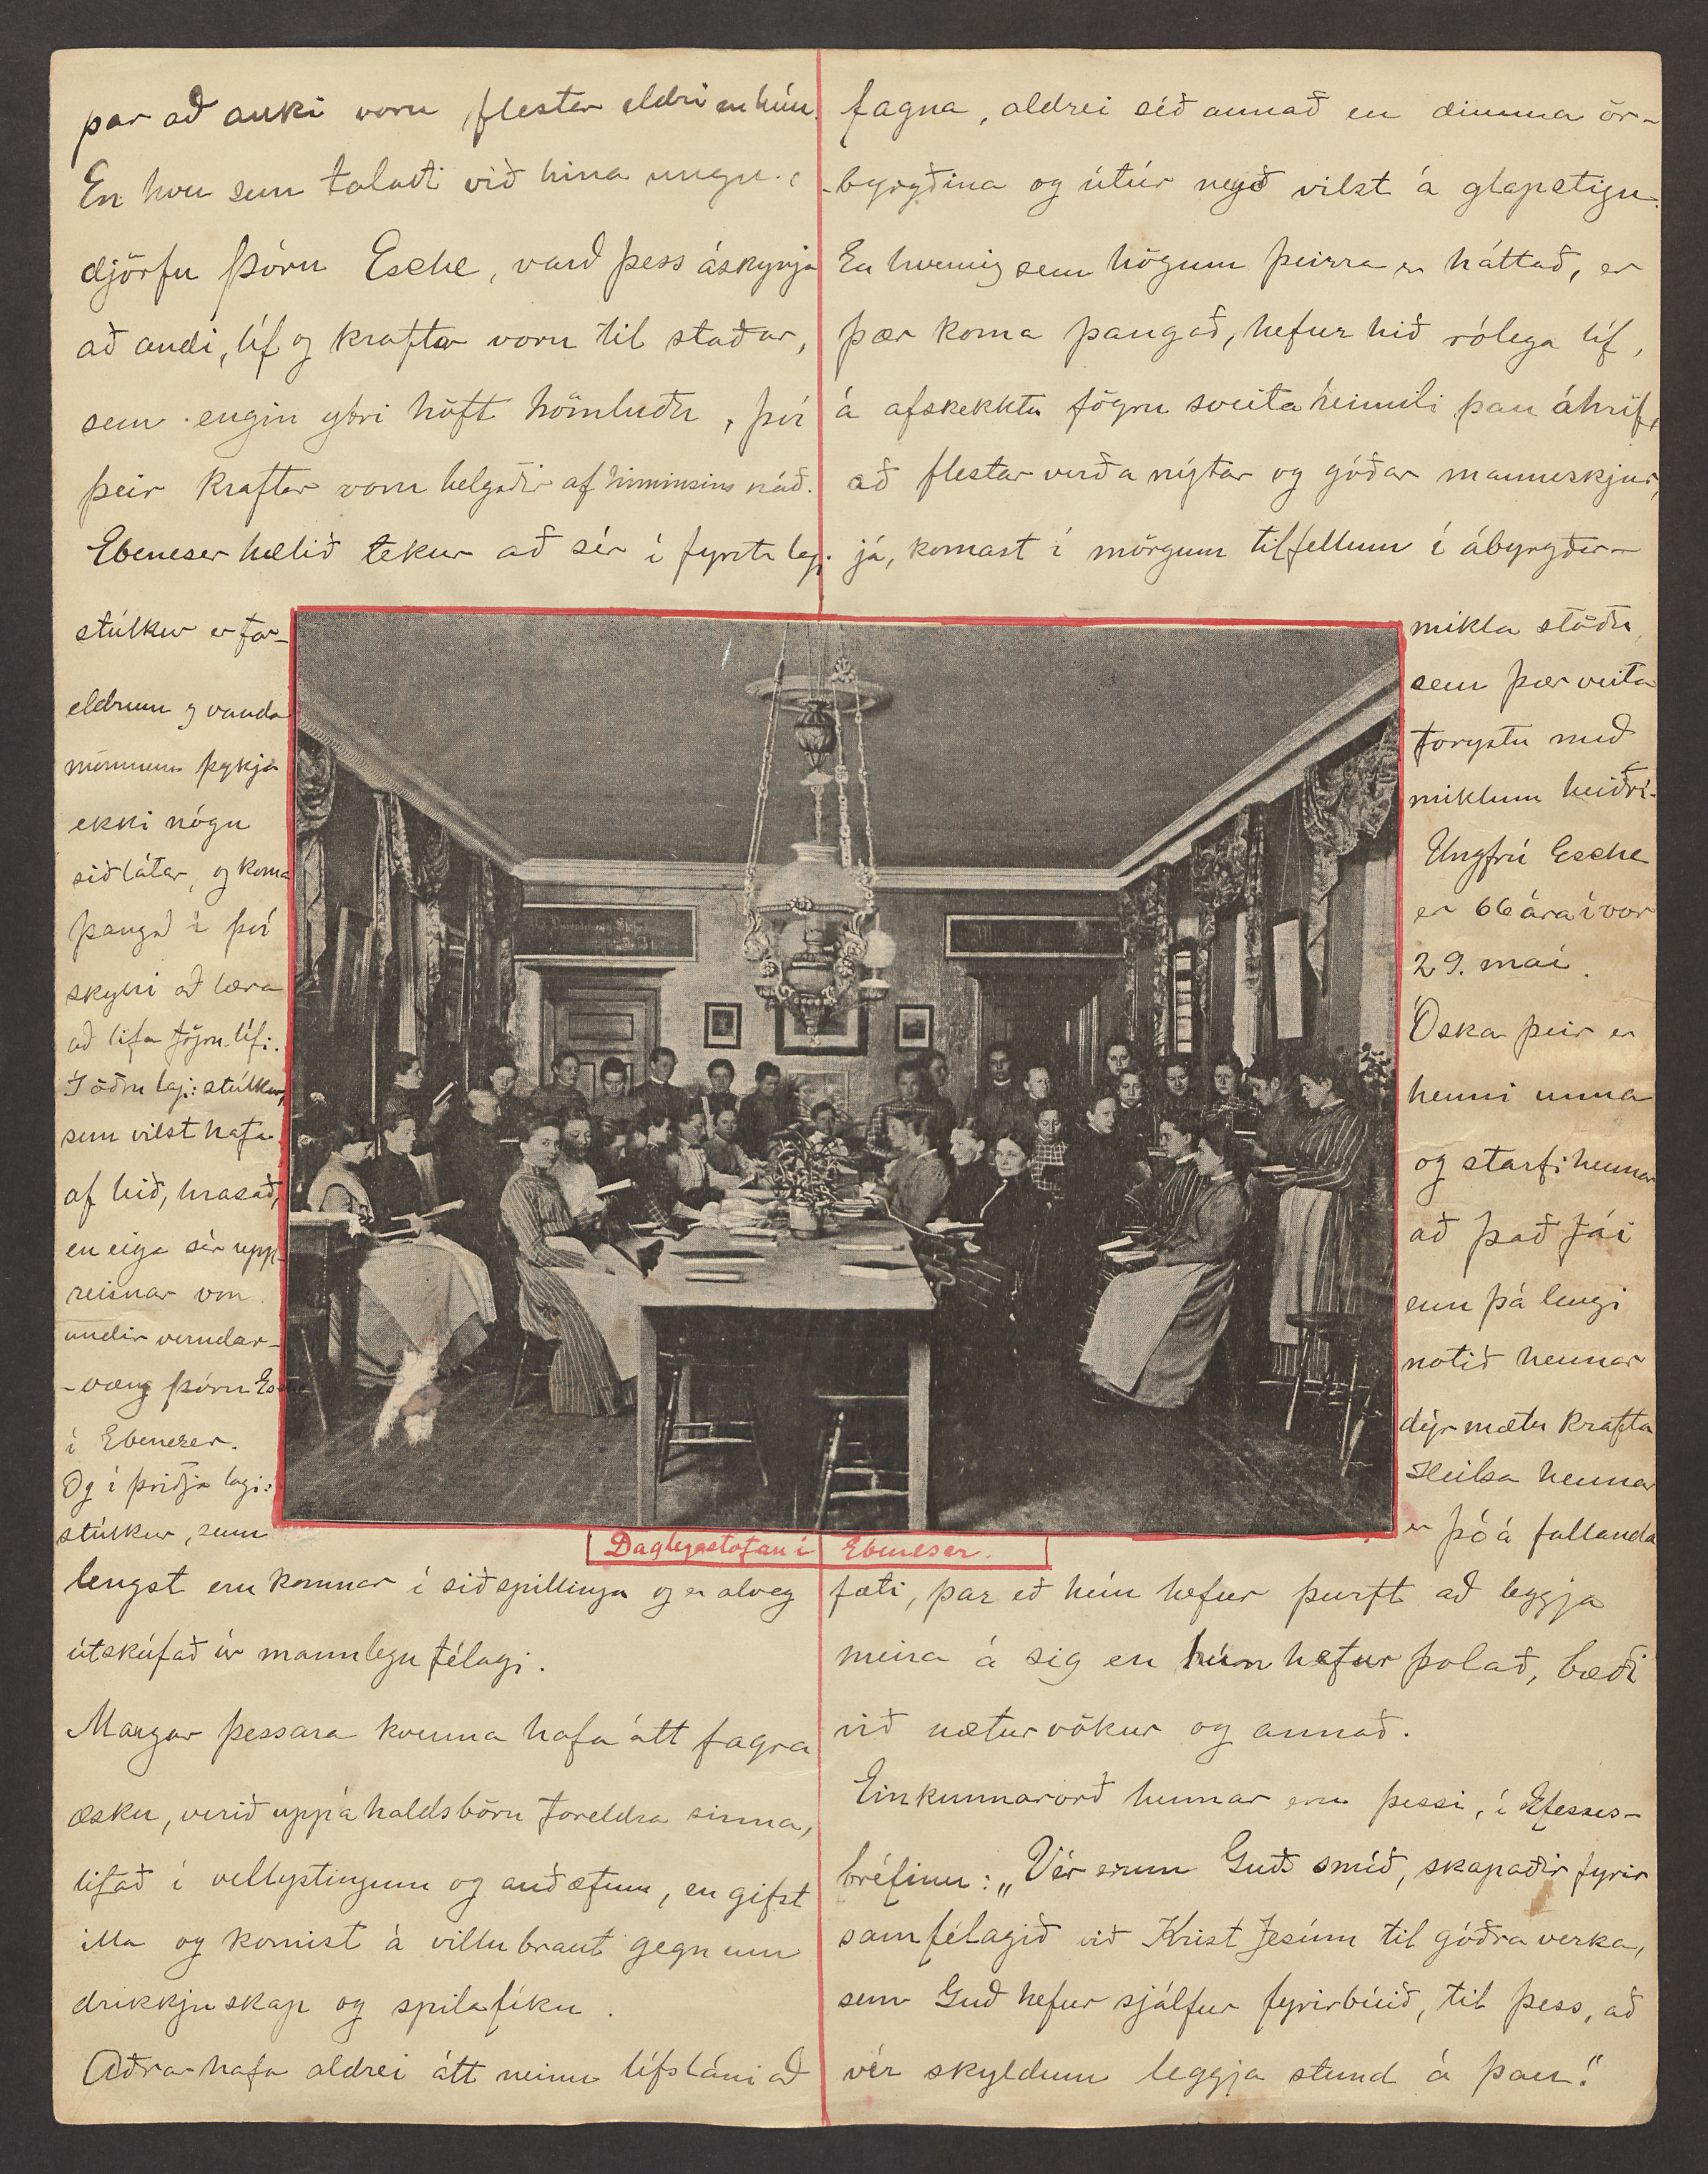 þar að auki voru flestar eldri en hún.
En hver sem talaði við hina ungu
djörfu Þóru Esche, varð þess áskynja
að andi, líf og kraftar voru til staðar,
sem engin ytri höft hömluðu, því
þeir kraftar voru helgaðir af himinsins náð.
Ebeneser hælið tekur að sér í fyrsta lagi:
stúlkur er for-
eldrum og vanda
mönnum þykja
ekki nógu
siðlátar, og koma
þangað í því
skyni að læra
að lifa fögru lífi.
Í öðru lagi: stúlkur,
sem vilst hafa
af leið, hrasað,
en eiga sér upp-
reisnar von
undir verndar-
-væng Þóru Es
í Ebeneser.
Og í þriðja lagi:
stúlkur, sem
lengst eru komnar í siðspillingu og er alveg
útskúfað úr mannlegu félagi.
Margar þessara kvenna hafa átt fagra
æsku, verið uppáhaldsbörn foreldra sinna,
lifað í vellystingum og auðæfum, en gifst
illa og komist á villubraut gegnum
drikkjuskap og spilafíkn.
Aðrar hafa aldrei átt neinu lífsláni að
fagna, aldrei séð annað en dimma ör-
-byrgðina og útúr neyð vilst á glapstigu.
En hvernig sem högum þeirra er háttað, er
þær koma þangað, hefur hið rólega líf,
á afskekktu fögru sveitaheimili þau áhrif,
að flestar verða nýtar og góðar manneskjur,
já, komast í mörgum tilfellum í ábyrgðar-
mikla stöðu,
sem þær veita
forystu með
miklum heiðri.
Ungfrú Esche
er 66 ára í vor
29. maí.
Óska þeir er
henni unna
og starfi hennar
að það fái
enn þá lengi
notið hennar
dýrmætu krafta
Heilsa hennar
er þó á fallanda
fæti, þar eð hún hefur þurft að leggja
meira á sig en hún hefur þolað, bæði
við næturvökur og annað.
Einkunnarorð hennar eru þessi, í Efesus-
bréfinu: „Vér erum Guðs smíð, skapaðir fyrir
samfélagið við Krist Jesúm til góðra verka,
sem Guð hefur sjálfur fyrirbúið, til þess, að
vér skyldum leggja stund á þau."
Daglegastofan í Ebeneser.